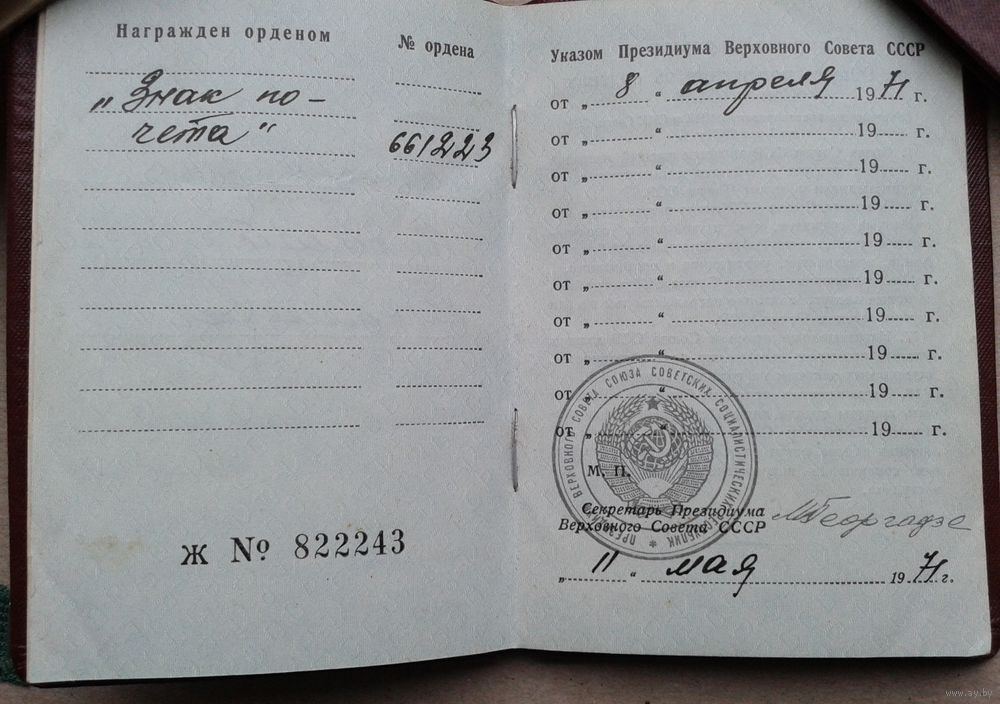 Награжден орденом
№ ордена
„Знак по-
чета“
661223
Ж № 822243
Указом Президиума Верховного Совета СССР
от „ 8 “ апреля 1971 г.
от „ “ 19 г.
от „ “ 19 г.
от „ “ 19 г.
от „ “ 19 г.
от „ “ 19 г.
от „ “ 19 г.
от „ “ 19 г.
от „ “ 19 г.
от „ “ 19 г.
ПРЕЗИДИУМ ВЕРХОВНОГО СОВЕТА СОЮЗА СОВЕТСКИХ СОЦИАЛИСТИЧЕСКИХ РЕСПУБЛИК
М. П.
Секретарь Президиума
Верховного Совета СССР
МГеоргадзе
„ 11 “ мая 1971 г.
www.ay.by